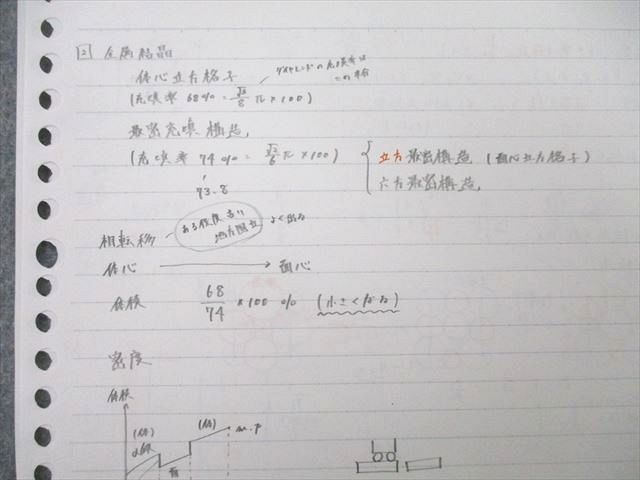 2 金属結晶
体心立方格子
ダイヤモンドの充填率はこの半分
(充填率 68% = √3/8 π × 100)
最密充填構造
(充填率 74% = √2/6 π × 100)
73.8
立方最密構造 (面心立方格子)
六方最密構造
相転移 よく出る
体心 → 面心
体積 68/74 × 100 % (小さくなる)
密度
体積
(体)
(体)
m.p